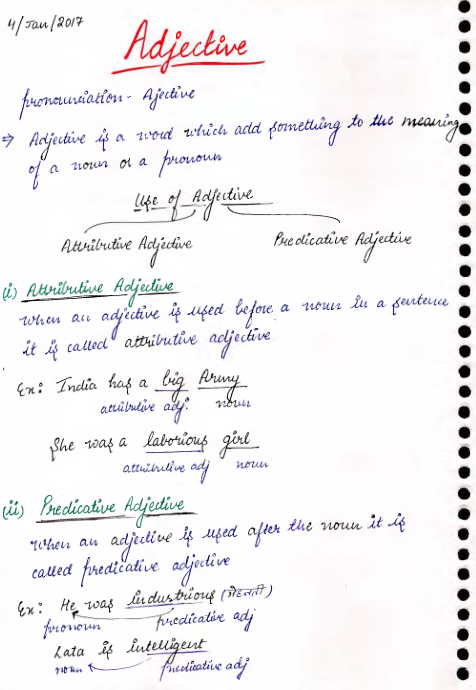 4/Jan/2017
Adjective
pronounciation - Ajective
⇒ Adjective is a word which add something to the meaning
of a noun or a pronoun
Use of Adjective
Attributive Adjective Predicative Adjective
(i) Attributive Adjective
when an adjective is used before a noun in a sentence
it is called attributive adjective
Ex: India has a big Army
attributive adj. noun
She was a laborious girl
attributive adj noun
(ii) Predicative Adjective
when an adjective is used after the noun it is
called predicative adjective
Ex: He was industrious (मेहनती)
pronoun predicative adj
Lata is intelligent
noun predicative adj